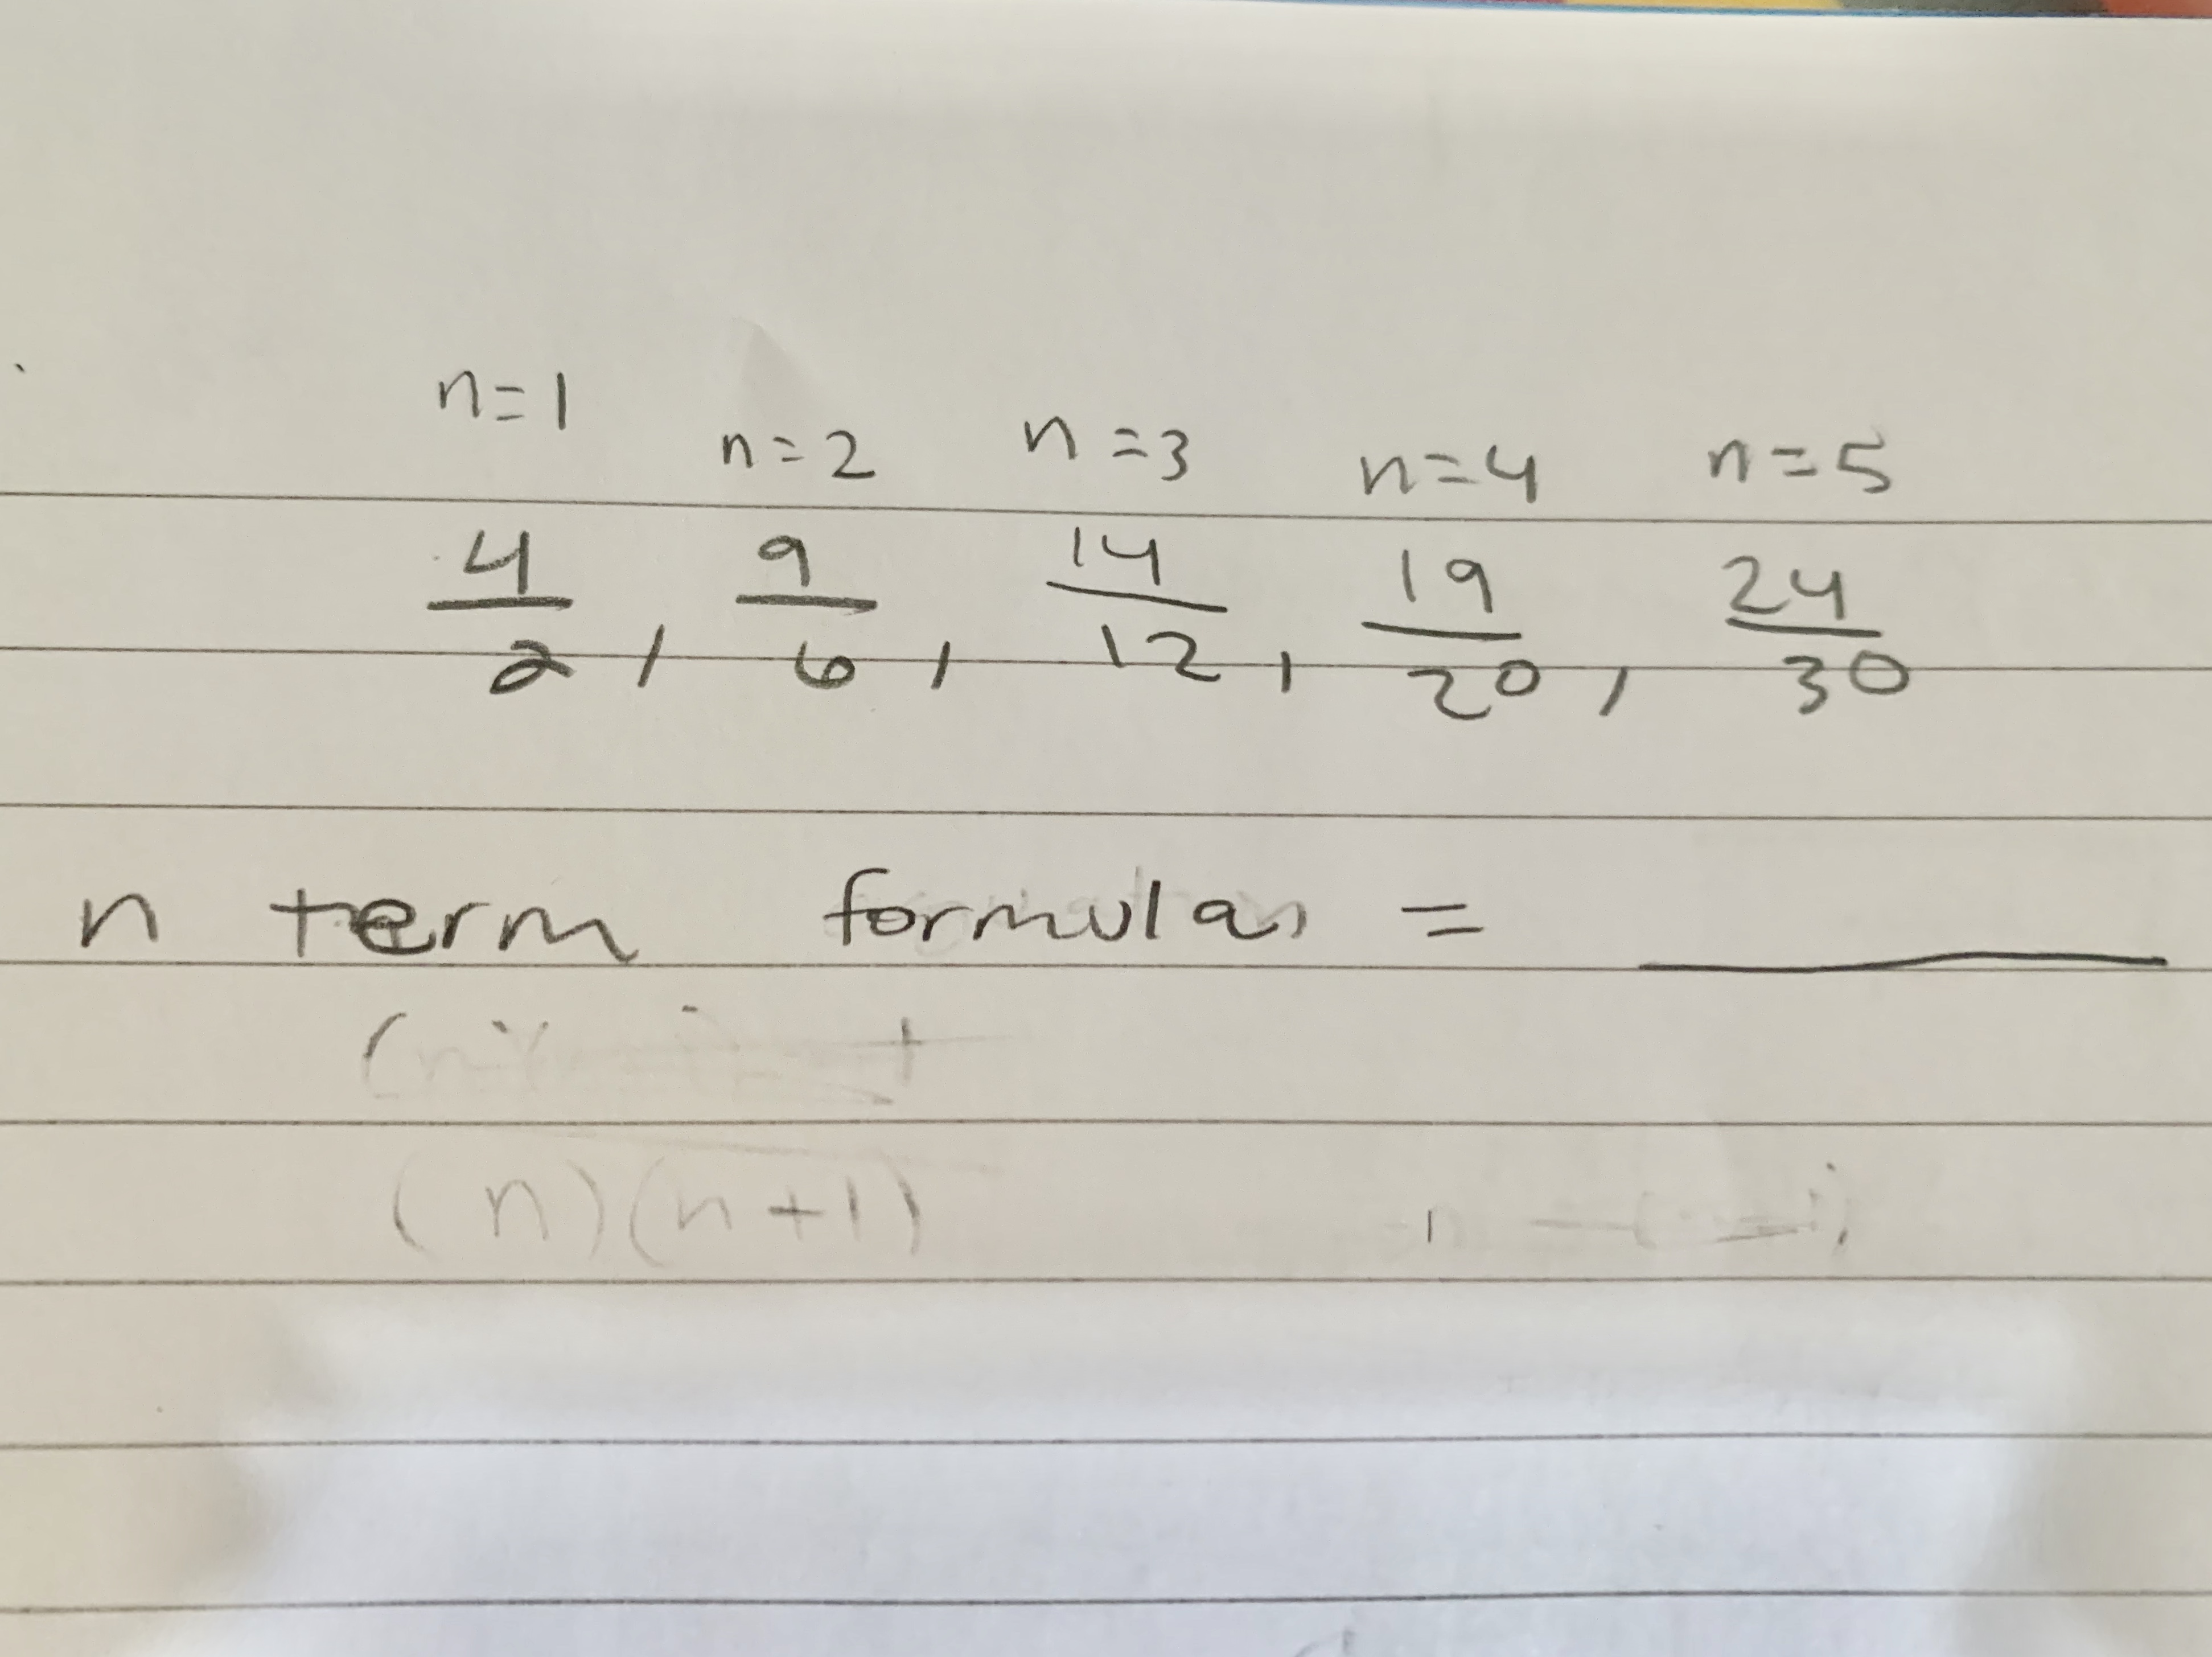 n=1 n=2 n=3 n=4 n=5
4/2, 9/6, 14/12, 19/20, 24/30
n term formula = ______
(n)(n+1)